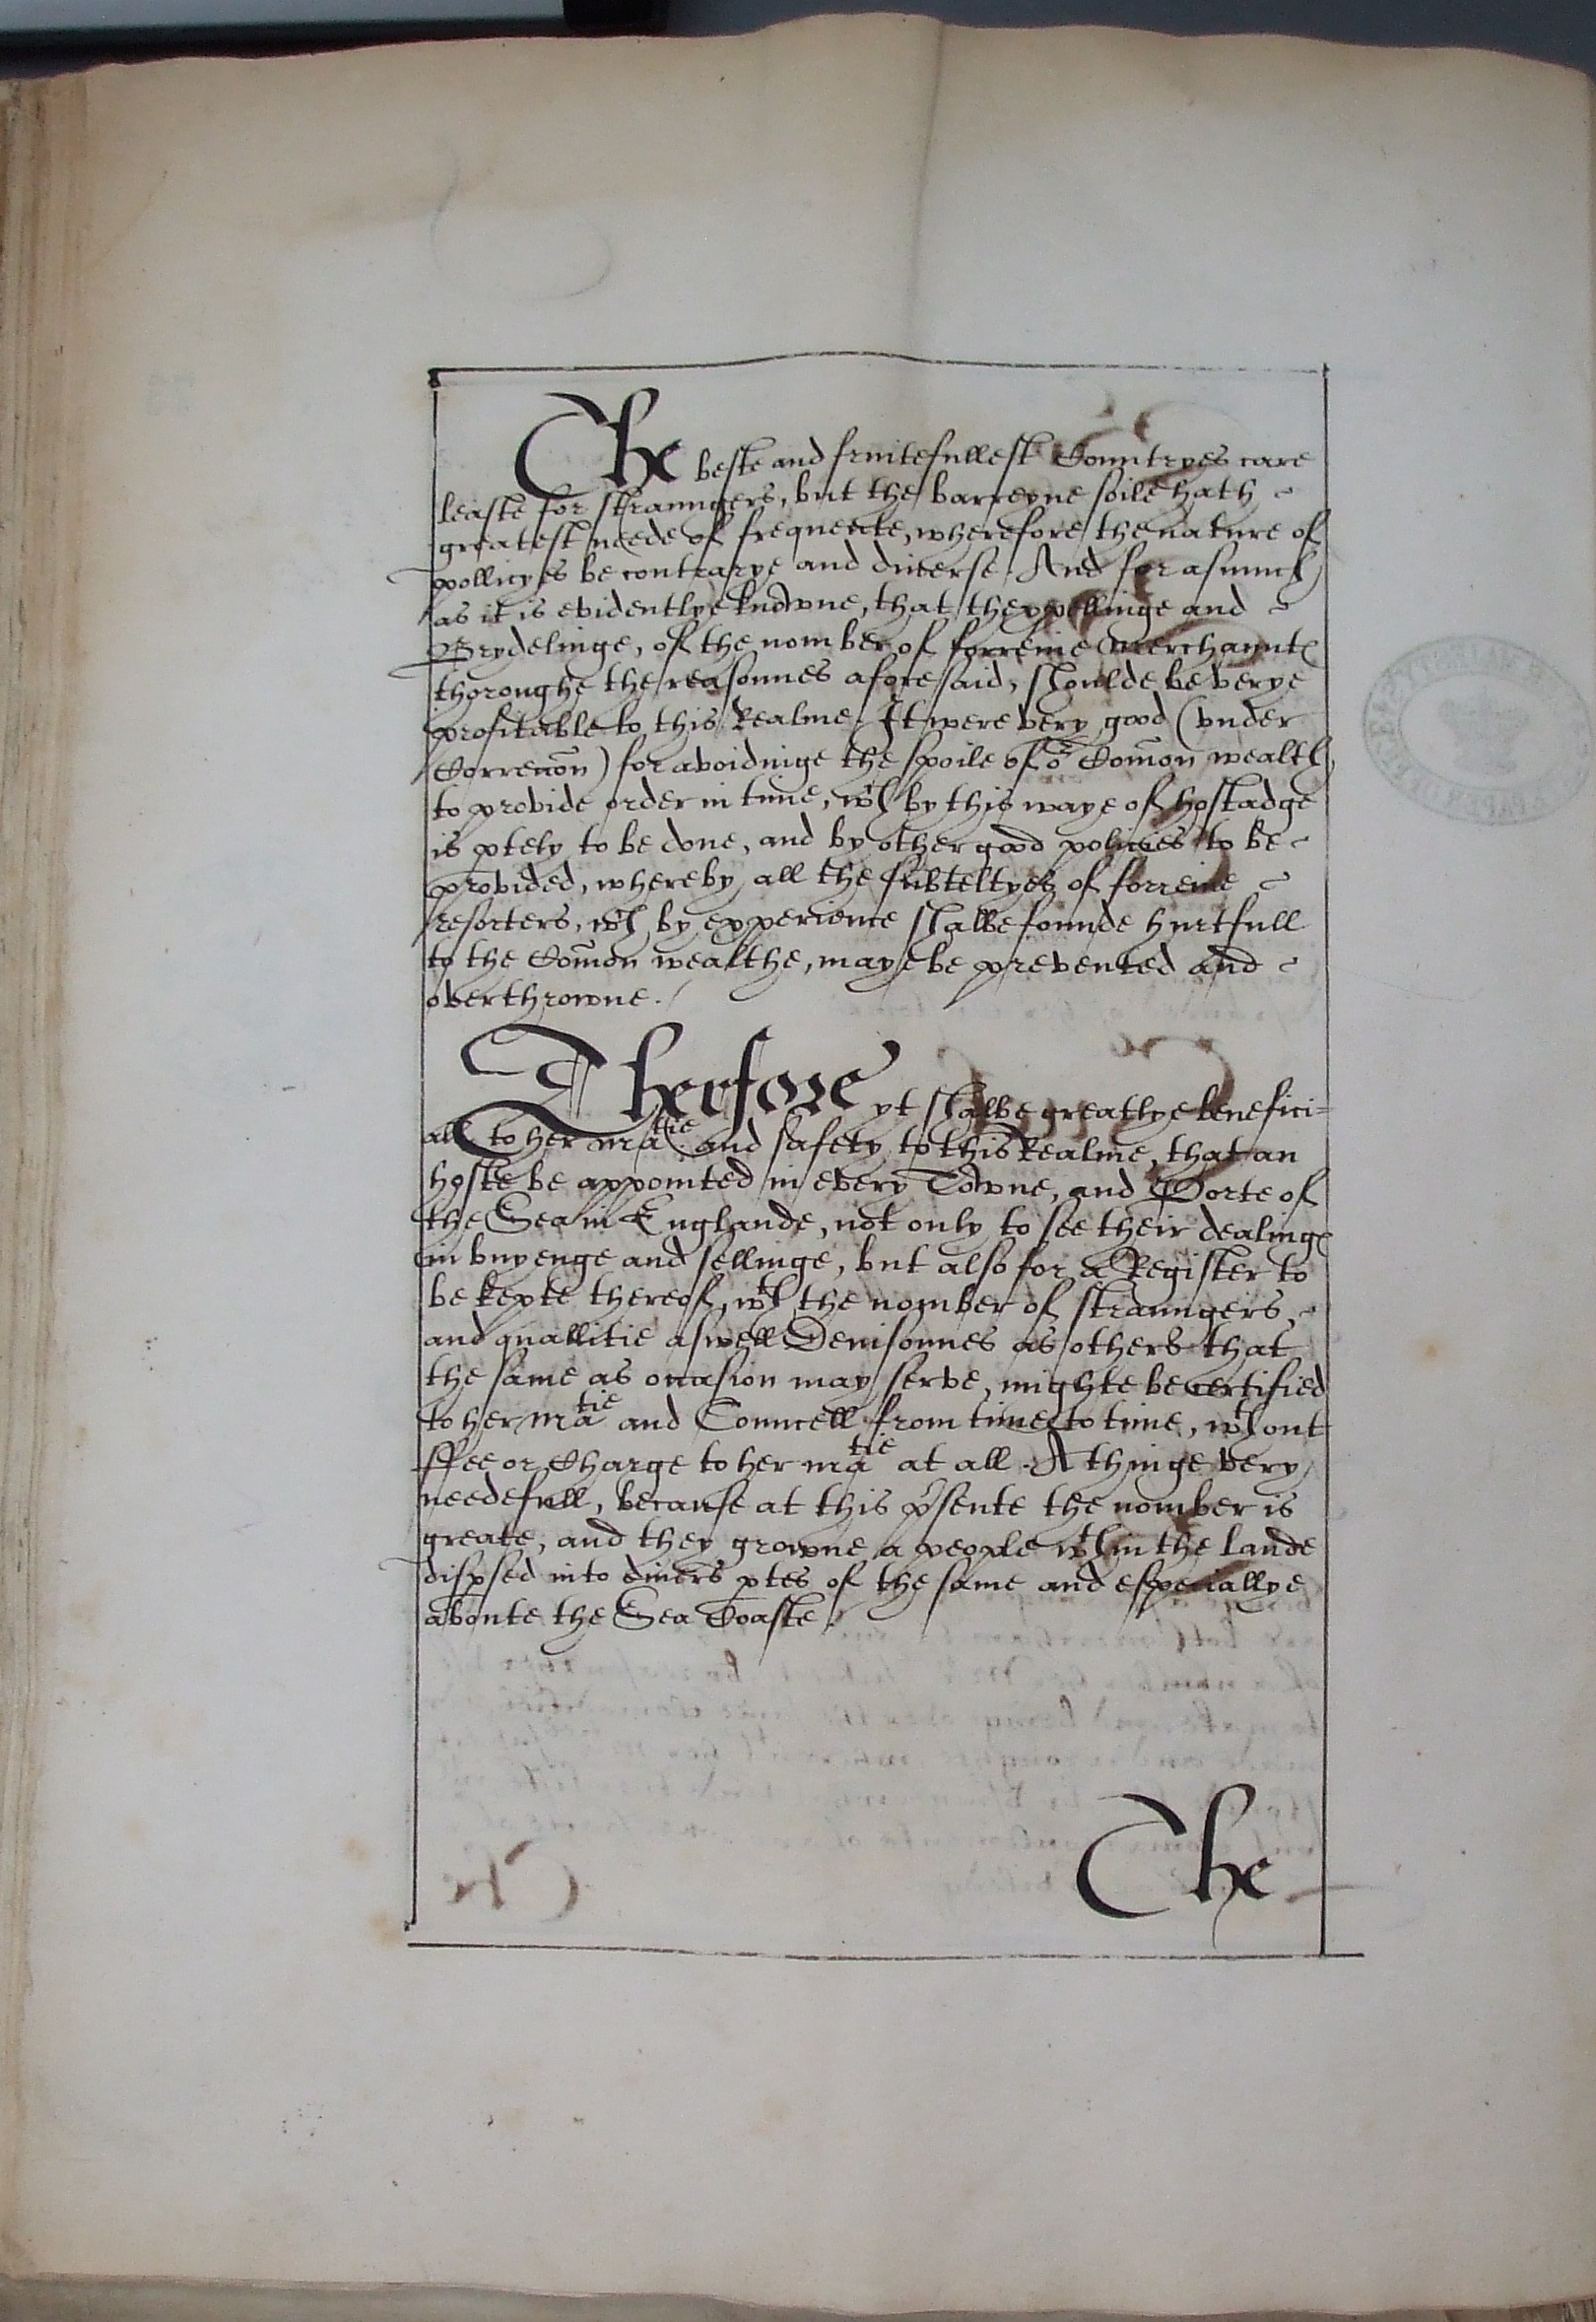 The beste and fruitefullest Countryes care
leaste for straungers, but the barreyne soile hath
greatest neede of frequente, wherefore the nature of
pollicyes be contrarye and diuerse. And for asmuch
as it is evidentlye knowne, that the expellinge and
Brydelinge, of the nomber of forreine Merchauntes
thoroughe the reasonnes aforesaid, shoulde be verye
profitable to this Realme. It were very good (vnder
Correcōn) for avoidinge the spoile of or Com̄on wealth
to provide order in time, wch by this waye of hostadge
is ptely to be done, and by other good policies to be
provided, whereby all the subteltyes of forreine
resorters, wch by experience shalbe founde hurtfull
to the Com̄on wealthe, maye be prevented and
overthrowne.
Therfore yt shalbe greatlye benefici=
all to her Matie. and safety to this Realme, that an
hoste be appointed in every Towne, and Porte of
the Sea in Englande, not only to see their dealinges
in buyenge and sellinge, but also for a Register to
be kepte thereof, wth the nomber of straungers,
and quallitie aswell Denisonnes as others that
the same as occasion may serve, mighte be certified
to her Matie and Councell from time to time, wthout
ffee or Charge to her Matie at all. A thinge very
needefull, because at this psente the nomber is
greate, and they growne a people wthin the Lande
dispsed into diuers ptes of the same and especiallye
aboute the Sea Coaste.
The